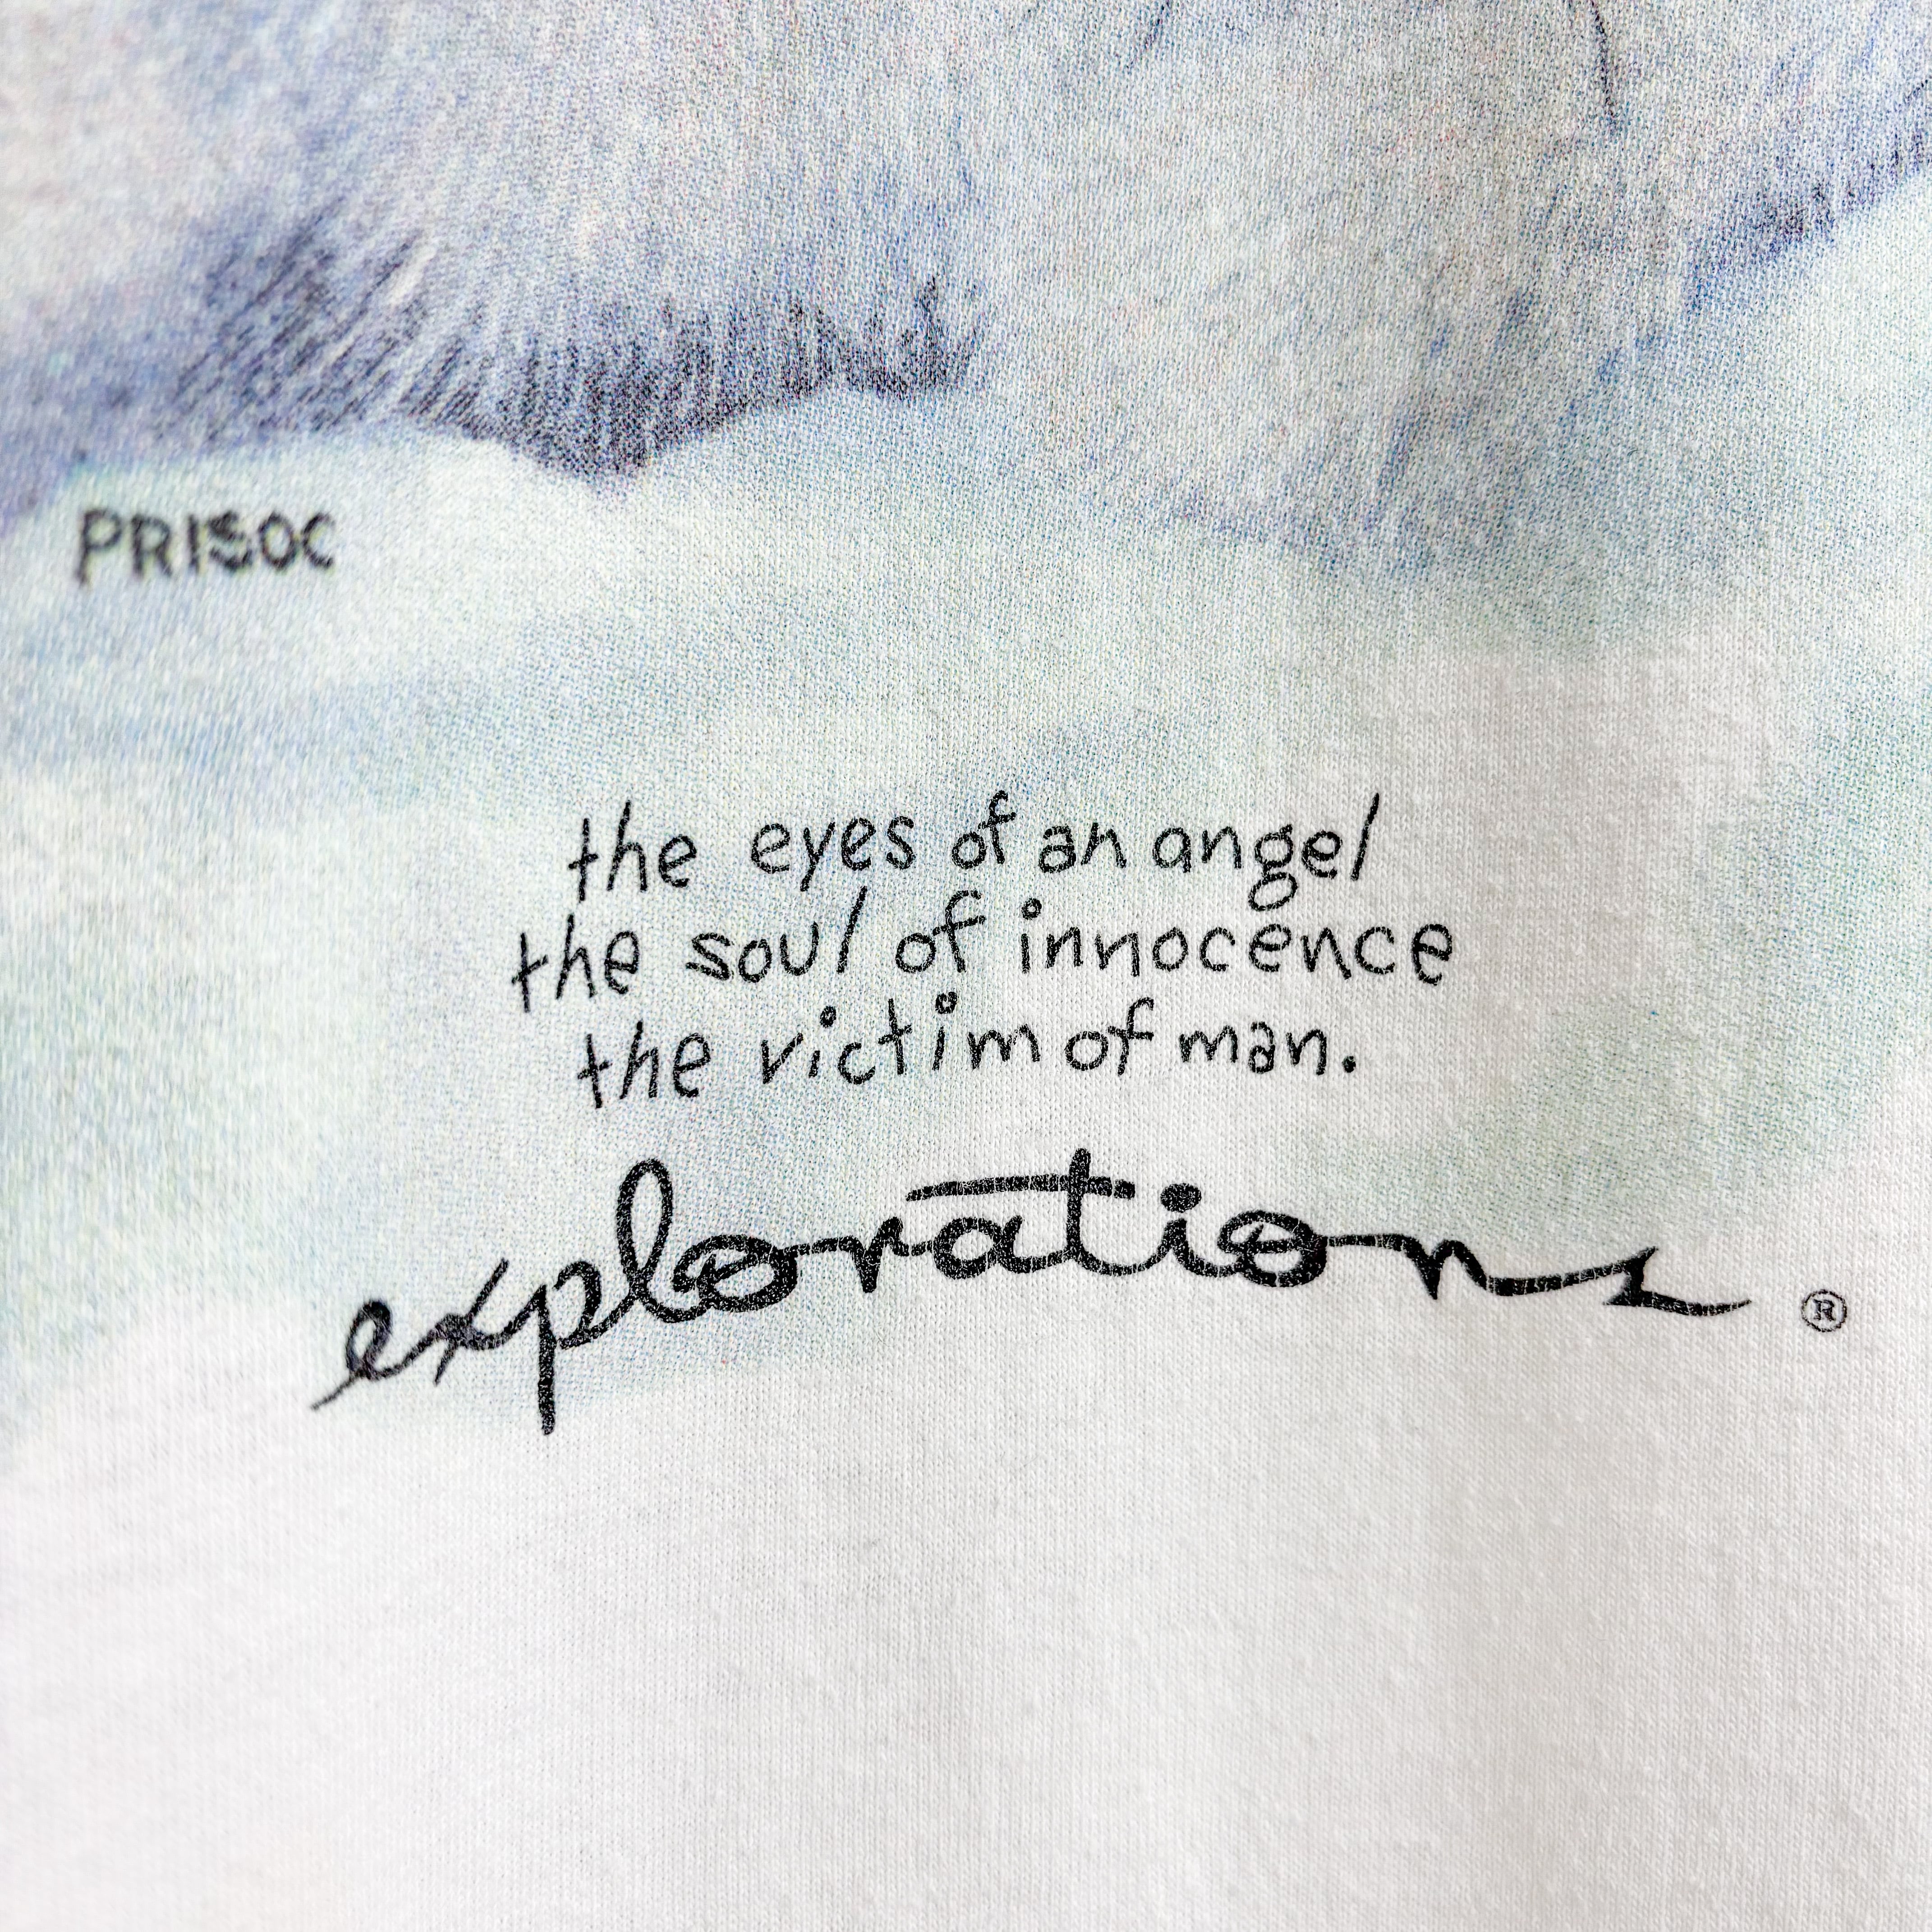 PRISOC
the eyes of an angel
the soul of innocence
the victim of man.
explorations ®